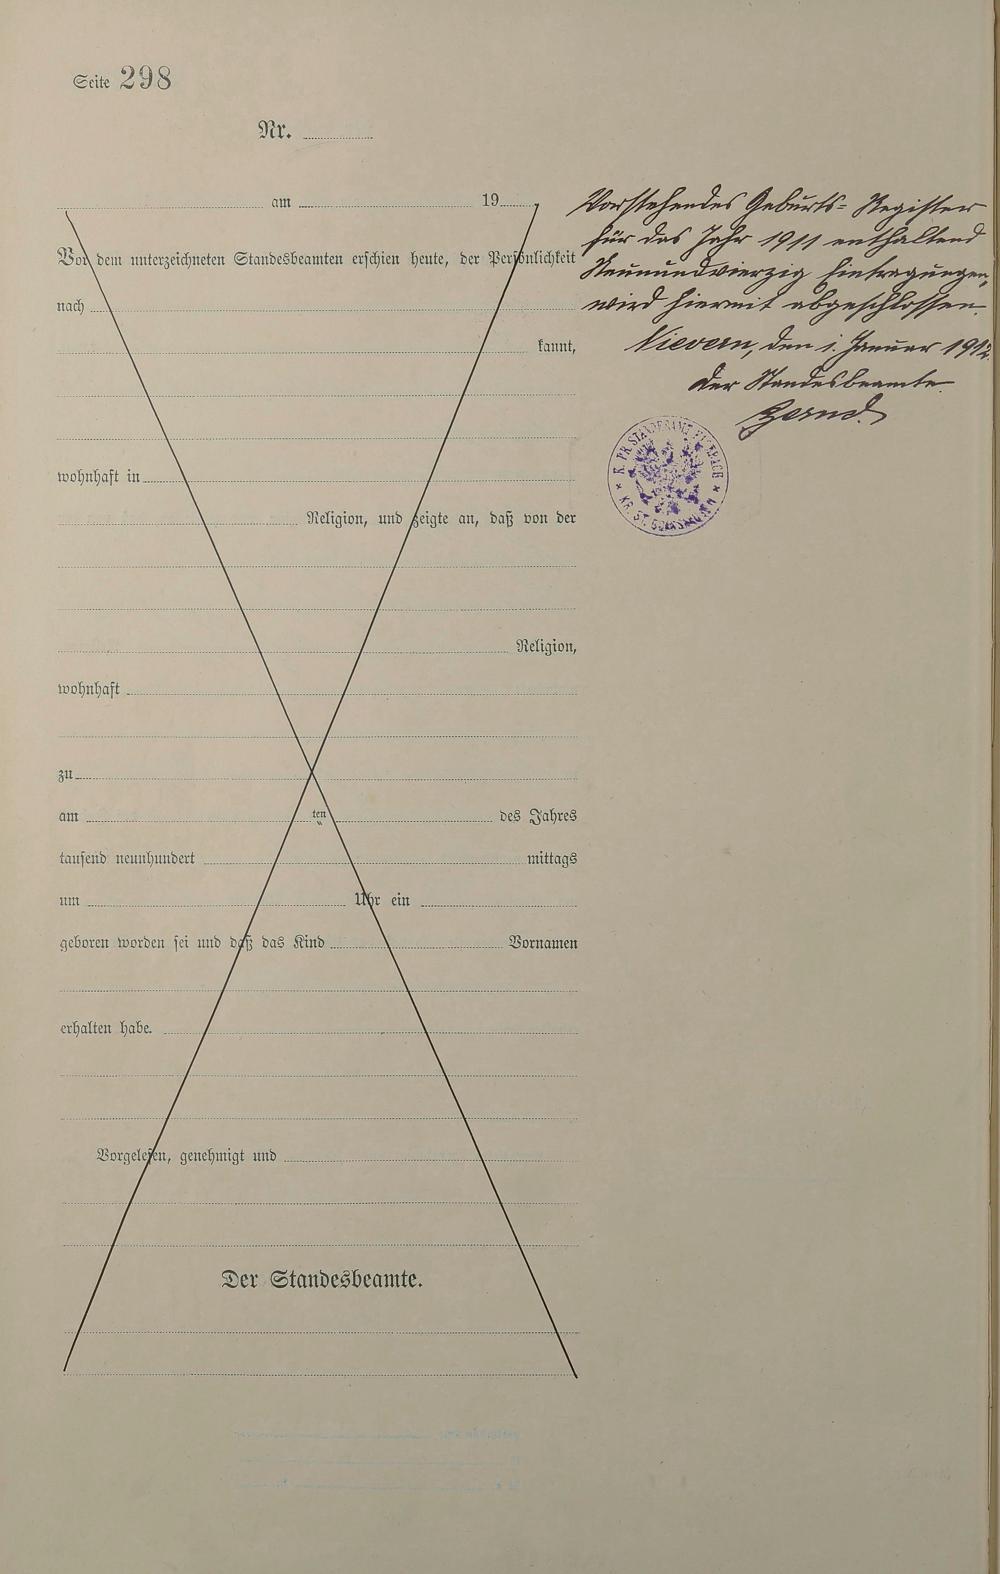 Seite 298
Nr.
am 19
Vor dem unterzeichneten Standesbeamten erschien heute, der Persönlichkeit
nach
kannt,
wohnhaft in
Religion, und zeigte an, daß von der
Religion,
wohnhaft
zu
am ten des Jahres
tausend neunhundert mittags
um Uhr ein
geboren worden sei und daß das Kind Vornamen
erhalten habe.
Vorgelesen, genehmigt und
Der Standesbeamte.
Vorstehendes Geburts-Register
für das Jahr 1911 enthaltend
Neunundvierzig Eintragungen,
wird hiermit abgeschlossen.
Nievern, den 1. Januar 1912.
Der Standesbeamte
K. PR. STANDESAMT
KR. ST. GOARSHAUSEN